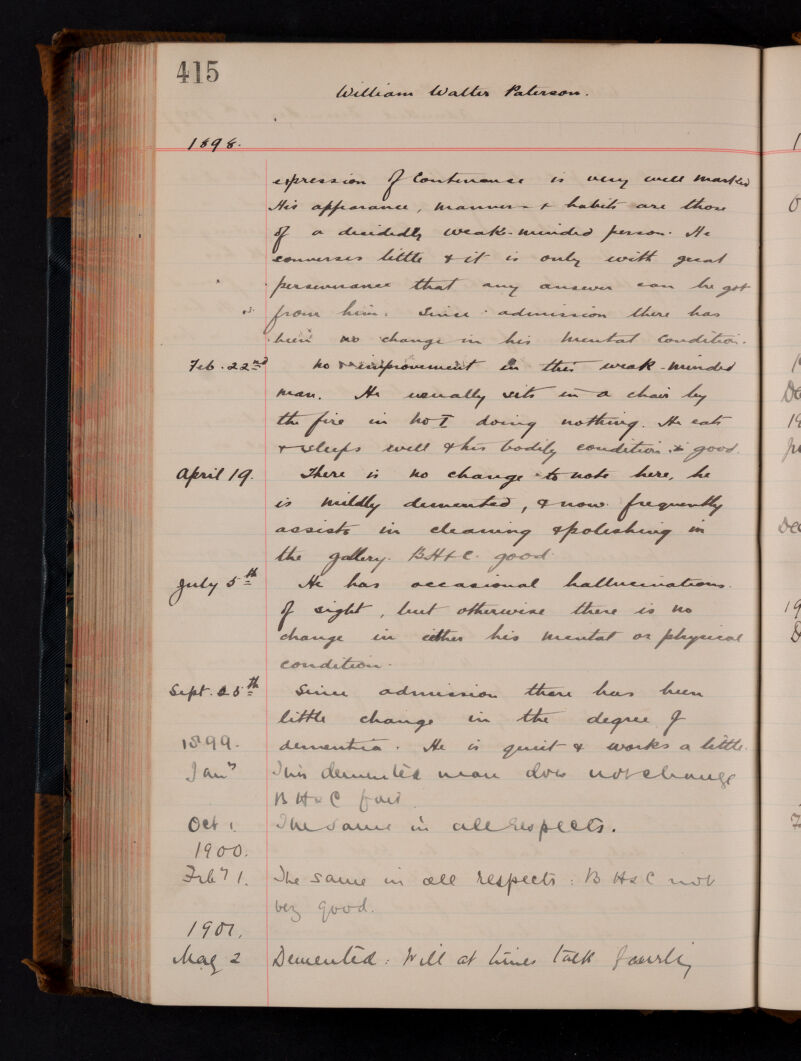 415
William Walter Paterson.
1898.
expression of Contenance is very well marked
His appearance, manner & habits are those
of a decidedly weak-minded person. He
converses little & it is only with great
perseverance that any answer can be got
from him. Since admission there has
been no change in his mental condition.
Feb. 22nd no improvement in this weak-minded
man. He usually sits in a chair by
the fire in No I doing nothing. He eats
& sleeps well & his bodily condition is good.
April 19. There is no change to note here, he
is mildly demented, & now frequently
assists in cleaning & polishing in
the gallery. B.H.&C. good.
July 5th He has occasional hallucinations
of sight, but otherwise there is no
change in either his mental or physical
condition.
Sept. 25th Since admission there has been
little change in the degree of
1899. dementia. He is quiet & works a little.
Jany This demented man does not change
B H & C fair.
Oct 1. The same in all respects.
1900.
Feby 1. The same in all respects: B H & C not
very good.
1901.
May 2 Demented: Will at times talk fairly